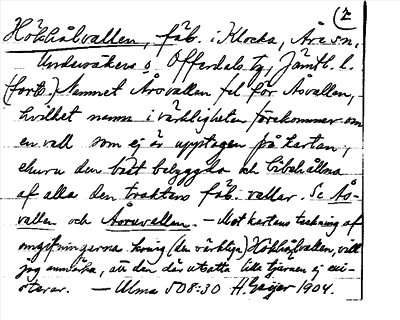 (2
Hökhålvallen, fäb. i Klocka, Åre sn,
Undersåkers o. Offerdals tg, Jämtl. l.
(forts.) Namnet Åsovallen fel för Åsvallen,
hvilket namn i värkligheten förekommer om
en vall som ej är upptagen på kartan,
ehuru den bäst bebyggda och bibehållna
af alla den traktens fäb. vallar. Se Ås-
vallen och Åsravallen. — Mot kartans teckning af
omgifningarna kring (den värkliga) Hökhålvallen, vill
jag anmärka, att den där utsatta lilla tjärnen ej exi-
sterar. — Ulma 508:30 H Geijer 1904.